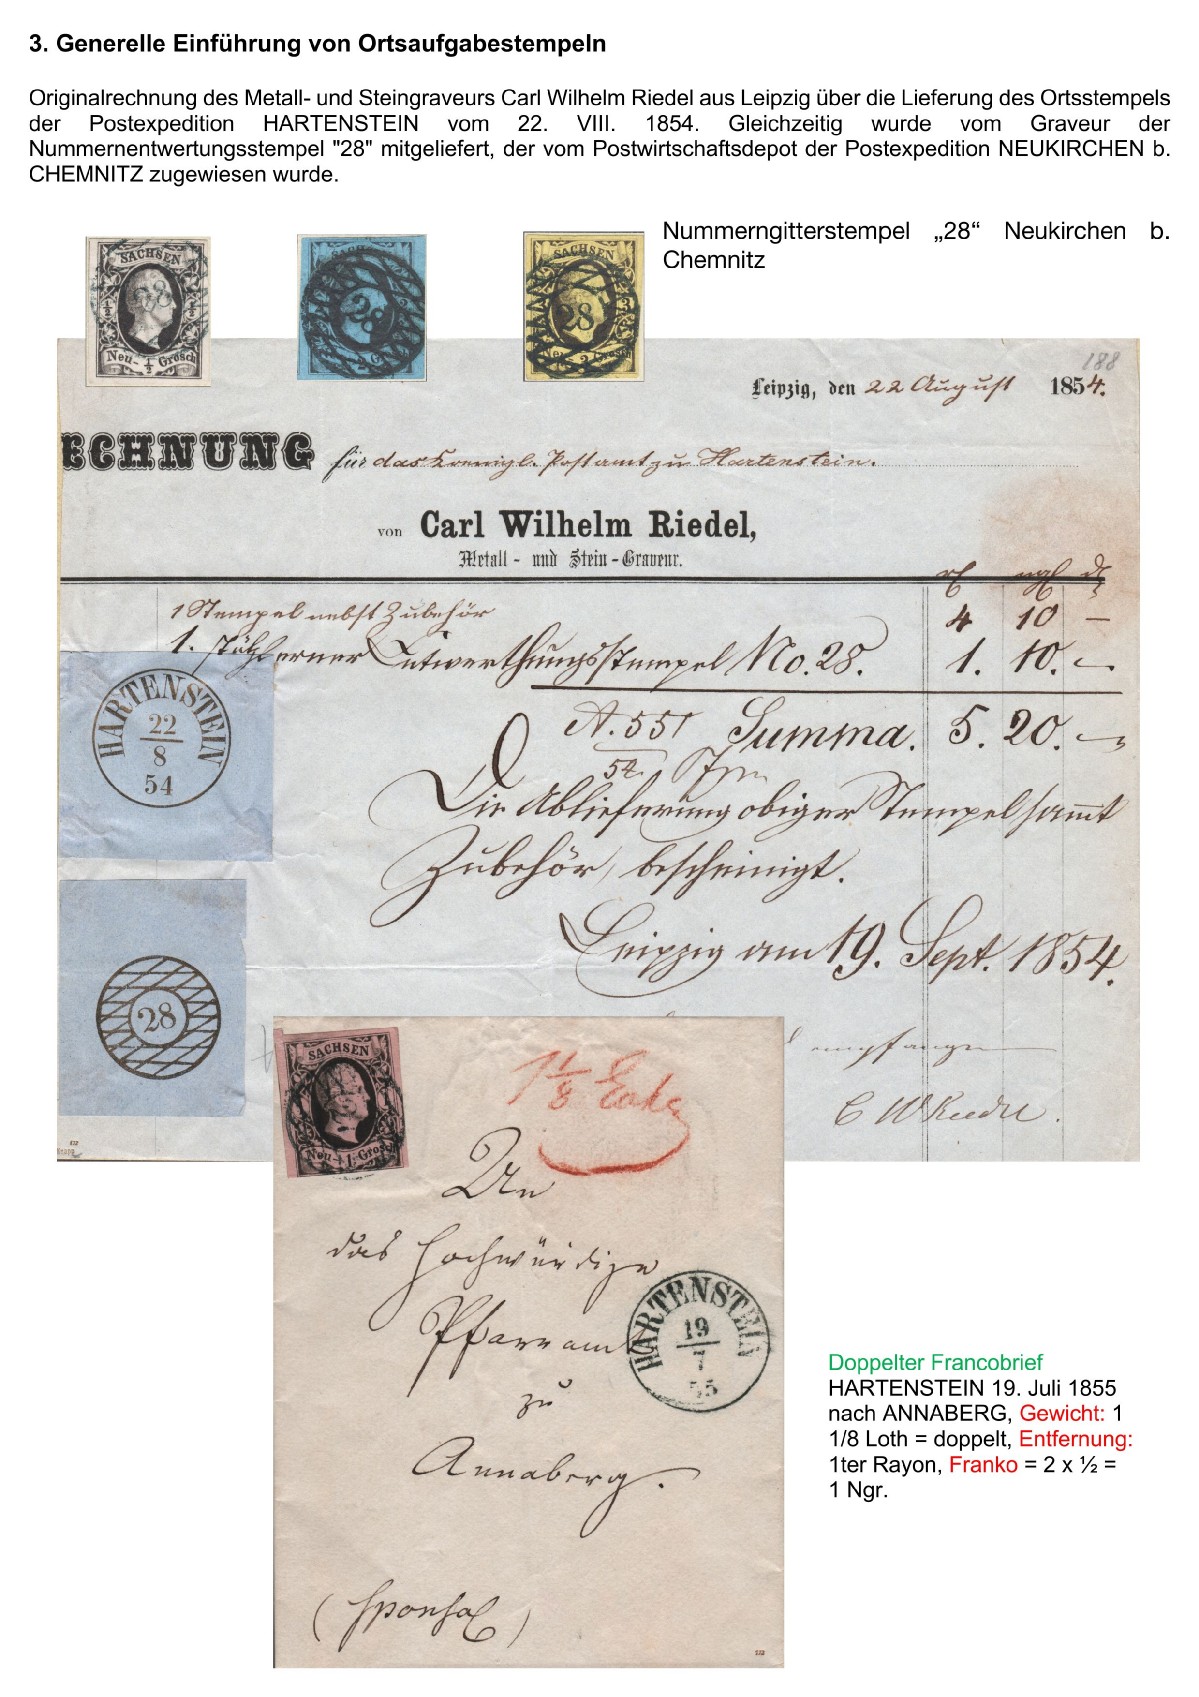 3. Generelle Einführung von Ortsaufgabestempeln
Originalrechnung des Metall- und Steingraveurs Carl Wilhelm Riedel aus Leipzig über die Lieferung des Ortsstempels
der Postexpedition HARTENSTEIN vom 22. VIII. 1854. Gleichzeitig wurde vom Graveur der
Nummernentwertungsstempel "28" mitgeliefert, der vom Postwirtschaftsdepot der Postexpedition NEUKIRCHEN b.
CHEMNITZ zugewiesen wurde.
Nummerngitterstempel „28“ Neukirchen b.
Chemnitz
SACHSEN
28
Neu- ½ Grosch
28
SACHSEN
28
Neu 3 Grosch
188
Leipzig, den 22 August 1854.
ECHNUNG für das Koenigl. Postamt zu Hartenstein.
von Carl Wilhelm Riedel,
Metall- und Stein-Graveur.
1 Stempel nebst Zubehör 4 10 –
1. stählerner Entwerthungsstempel No. 28. 1. 10. –
A. 551 Summa. 5. 20. –
54.
Die Ablieferung obiger Stempel sammt
Zubehör, bescheinigt.
Leipzig am 19. Sept. 1854.
HARTENSTEIN
22
8
54
28
empfangen
C W Riedel.
SACHSEN
Neu- 1 Grosch
1 1/8 Loth
An
das Hochwürdige
Pfarramt
zu
Annaberg.
(Sponsal)
HARTENSTEIN
19
7
55
532
532
Doppelter Francobrief
HARTENSTEIN 19. Juli 1855
nach ANNABERG, Gewicht: 1
1/8 Loth = doppelt, Entfernung:
1ter Rayon, Franko = 2 x ½ =
1 Ngr.